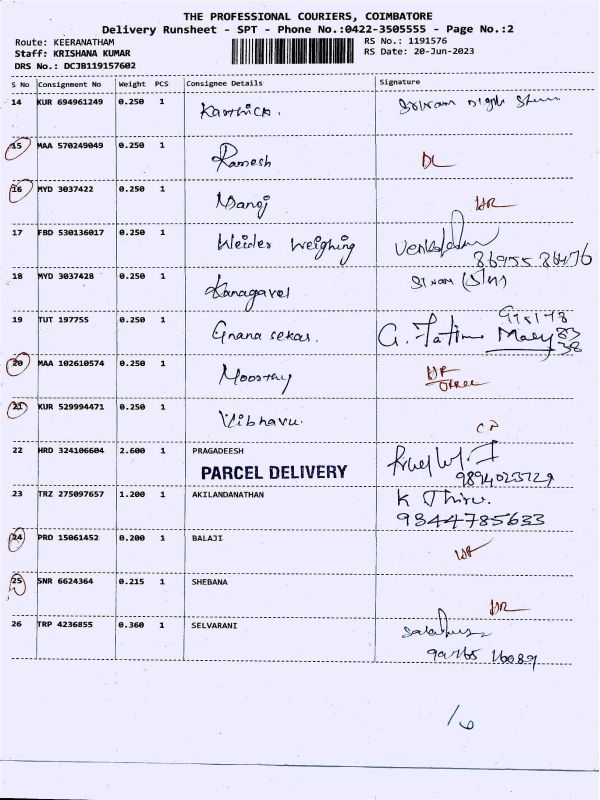 THE PROFESSIONAL COURIERS, COIMBATORE
Delivery Runsheet - SPT - Phone No.:0422-3505555 - Page No.:2
Route: KEERANATHAM
RS No.: 1191576
Staff: KRISHANA KUMAR
RS Date: 20-Jun-2023
DRS No.: DCJB119157602
S No Consignment No Weight PCS Consignee Details Signature
14 KUR 694961249 0.250 1 Karthick.
15 MAA 570249049 0.250 1 Ramesh DL
16 MYD 3037422 0.250 1 Manoj
17 FBD 530136017 0.250 1 Weider Weighing
18 MYD 3037428 0.250 1 Kanagavel
19 TUT 197755 0.250 1 Gnana sekar.
20 MAA 102610574 0.250 1 Moorthy
21 KUR 529994471 0.250 1 Vibhavu.
22 HRD 324106604 2.600 1 PRAGADEESH
PARCEL DELIVERY
9894023729
23 TRZ 275097657 1.200 1 AKILANDANATHAN K Thiru.
9344785633
24 PRD 15061452 0.200 1 BALAJI
25 SNR 6624364 0.215 1 SHEBANA
26 TRP 4236855 0.360 1 SELVARANI